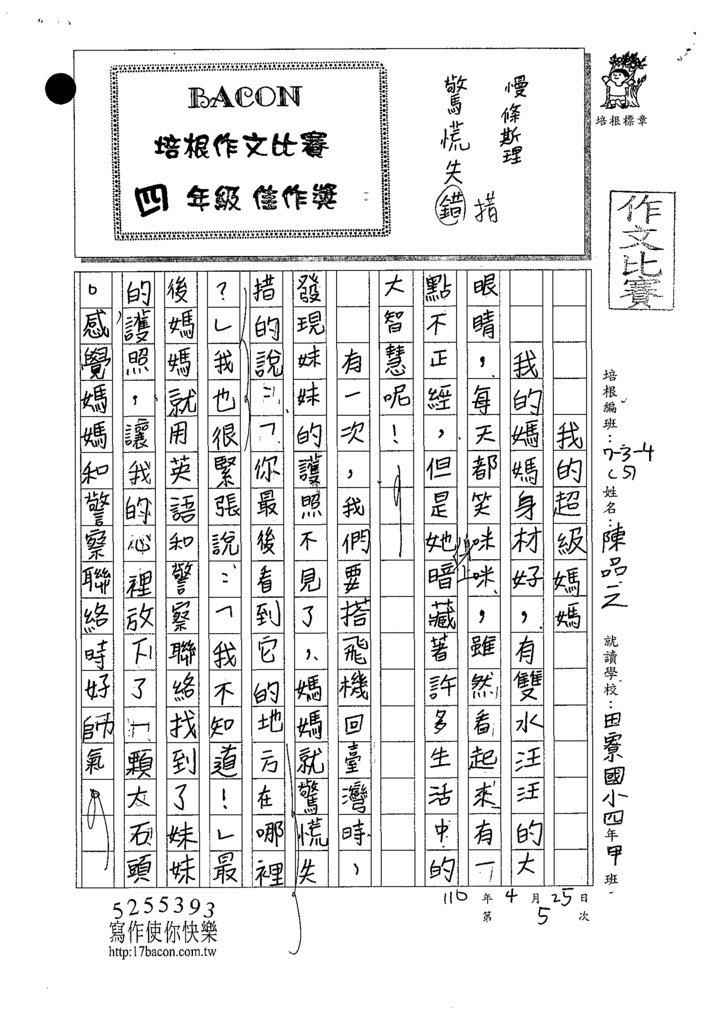 培根標章
作文比賽
培根編班：7-3-4
(5)
姓名：陳品之
就讀學校：田寮國小四年甲班
慢條斯理
驚慌失錯
措
BACON
培根作文比賽
四年級佳作獎
我的超級媽媽
我的媽媽身材好，有雙水汪汪的大
眼睛，每天都笑咪咪，雖然看起來有一
點不正經，但是她暗藏著許多生活中的
大智慧呢！
有一次，我們要搭飛機回臺灣時，
發現妹妹的護照不見了，媽媽就驚慌失
措的說：「你最後看到它的地方在哪裡
？」我也很緊張說：「我不知道！」最
後媽媽就用英語和警察聯絡找到了妹妹
的護照，讓我的心裡放下了一顆大石頭
。感覺媽媽和警察聯絡時好帥氣
110年4月25日
第5次
5255393
寫作使你快樂
http:17bacon.com.tw